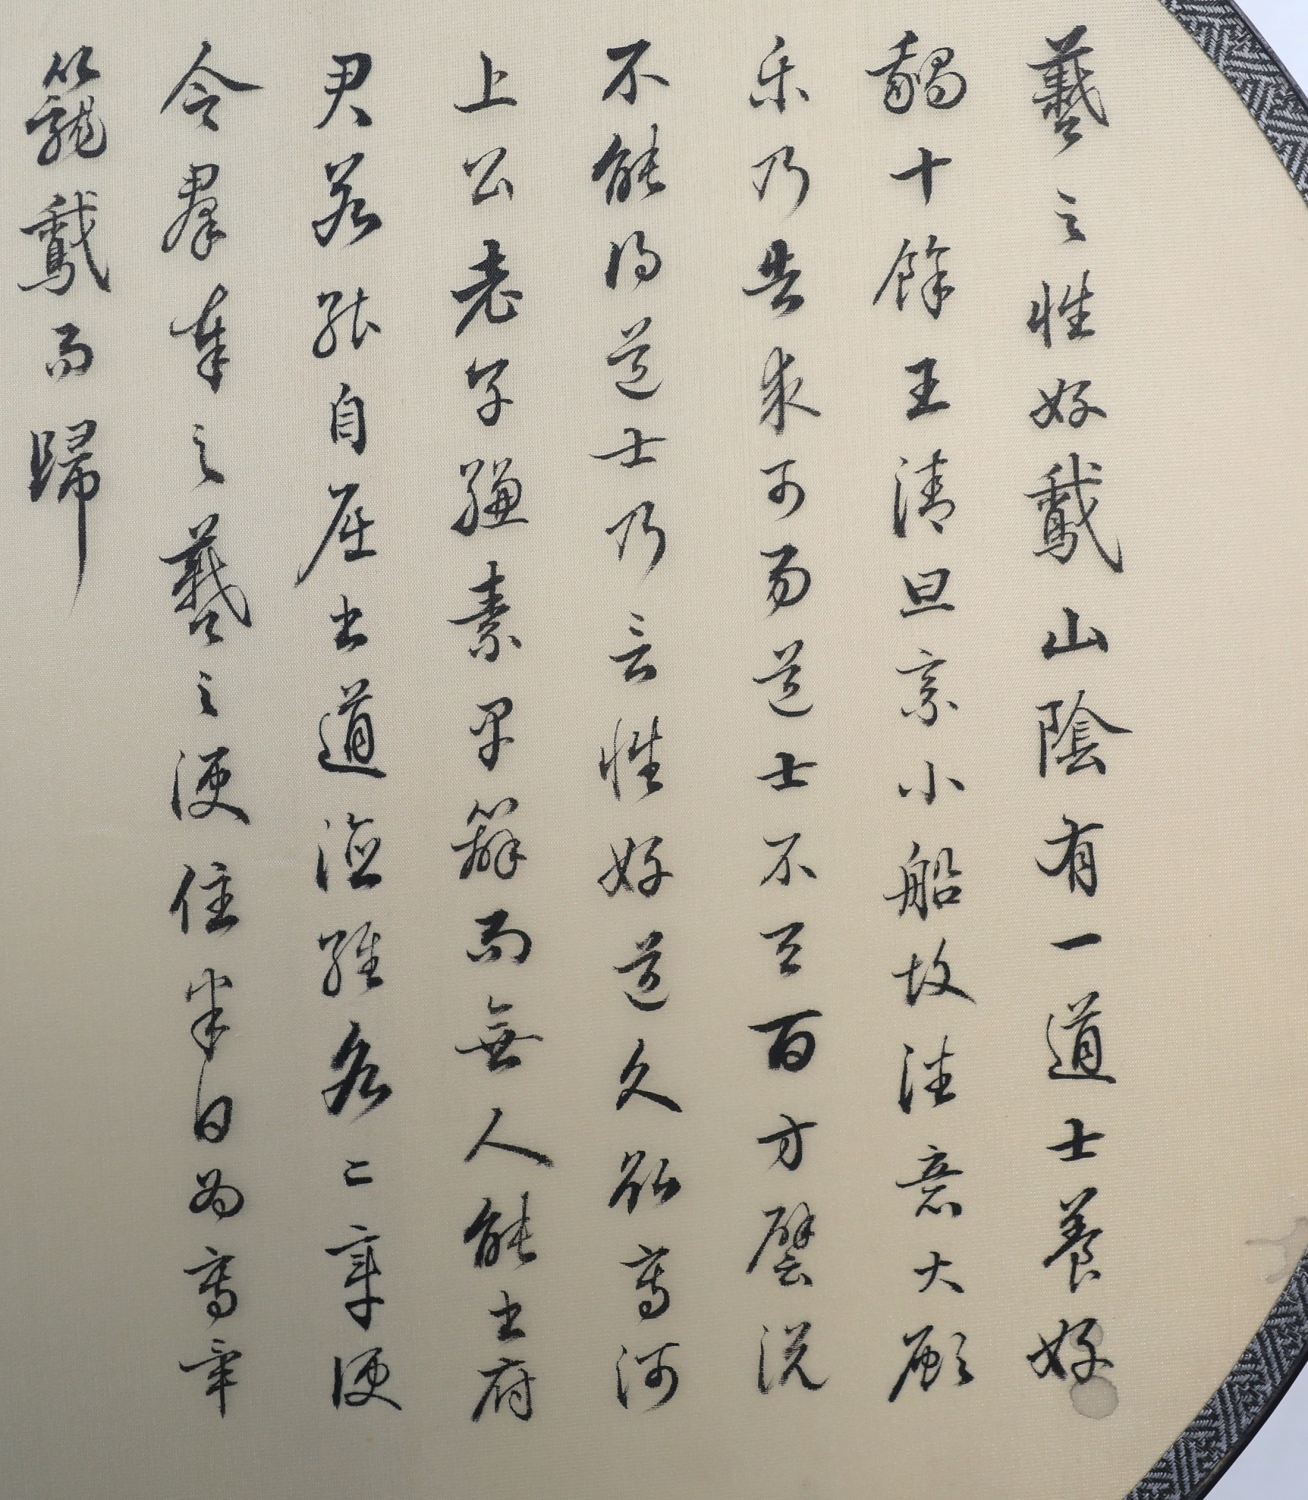 羲之性好鵞山陰有一道士養好
鵝十餘王清旦乘小船故往意大願
乐乃告求市易道士不与百方譬说
不能得道士乃言性好道久欲寫河
上公老子縑素早辦而無人能書府
君若能自屈書道德經各二章便
今羣奉之羲之便住半日為寫畢
籠鵞而歸